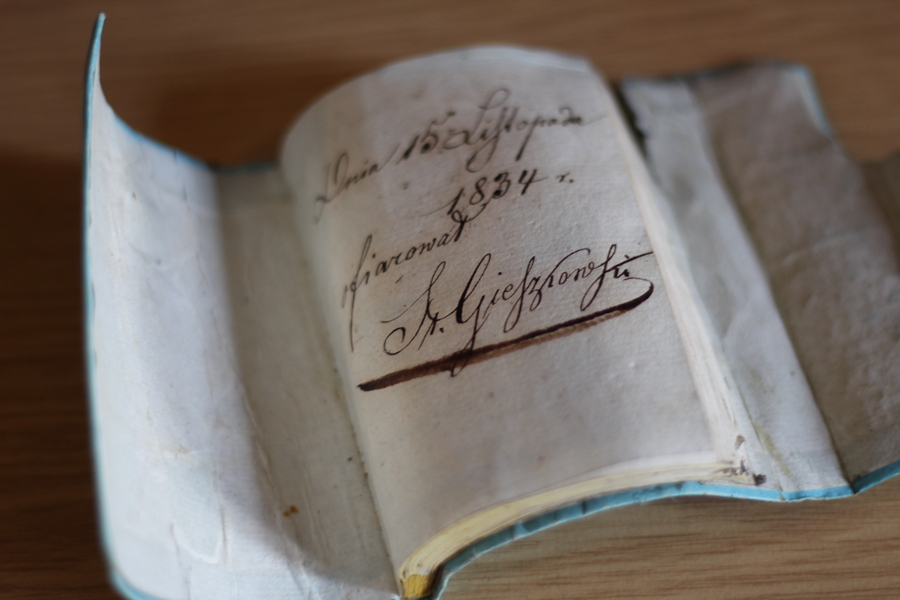 Dnia 15 Listopada
1834 r.
ofiarował
St. Gieszkowski